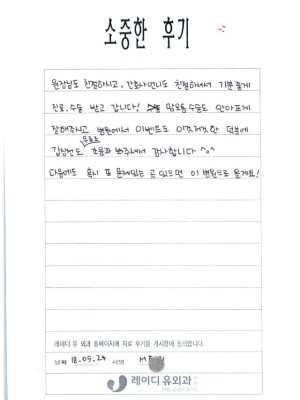 소중한 후기
원장님도 친절하시고, 간호사언니도 친절하셔서 기분 좋게
진료, 수술 받고 갑니다! 맘모톰수술도 안아프게
잘해주시고 병원에서 이벤트도 이것저것한 덕분에
무료로
갑상선도 초음파 봐주셔서 감사합니다 ^o^
다음에도 혹시 또 문제있는 곳 있으면 이 병원으로 올게요!
레이디 유 외과 홈페이지에 치료 후기를 게시함에 동의합니다.
날짜 18.05.24 서명
레이디 유외과